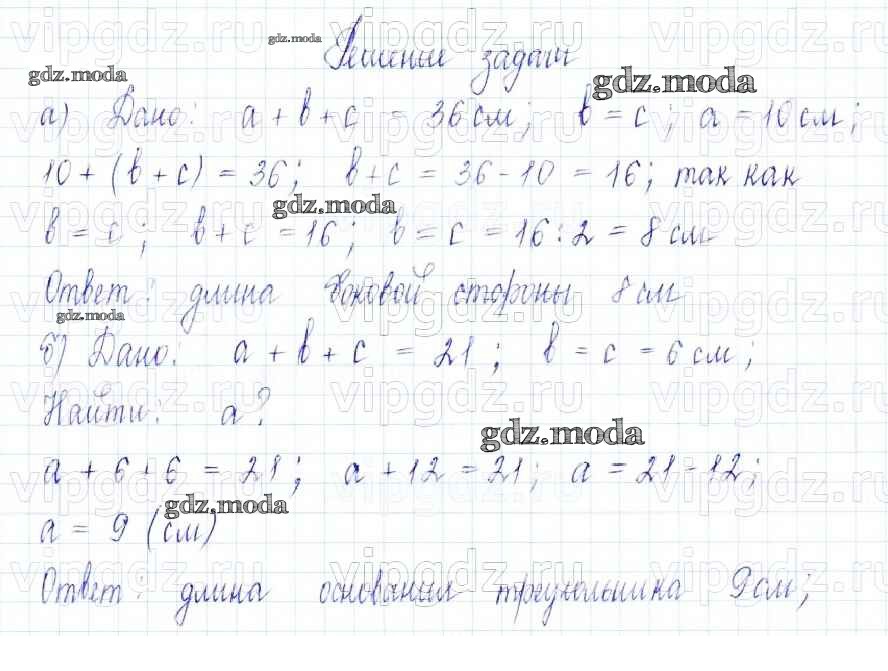 Решение задачи
а) Дано: a + b + c = 36 см; b = c; a = 10 см;
10 + (b + c) = 36; b + c = 36 - 10 = 16; так как
b = c; b + c = 16; b = c = 16 : 2 = 8 см
Ответ: длина боковой стороны 8 см
б) Дано: a + b + c = 21; b = c = 6 см;
Найти: a?
a + 6 + 6 = 21; a + 12 = 21; a = 21 - 12;
a = 9 (см)
Ответ: длина основания треугольника 9 см;
gdz.moda
gdz.moda
gdz.moda
gdz.moda
gdz.moda
gdz.moda
gdz.moda
vipgdz.ru